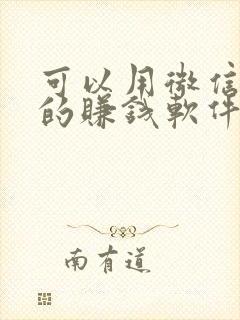 可以用微信
的赚钱軟件
南有道